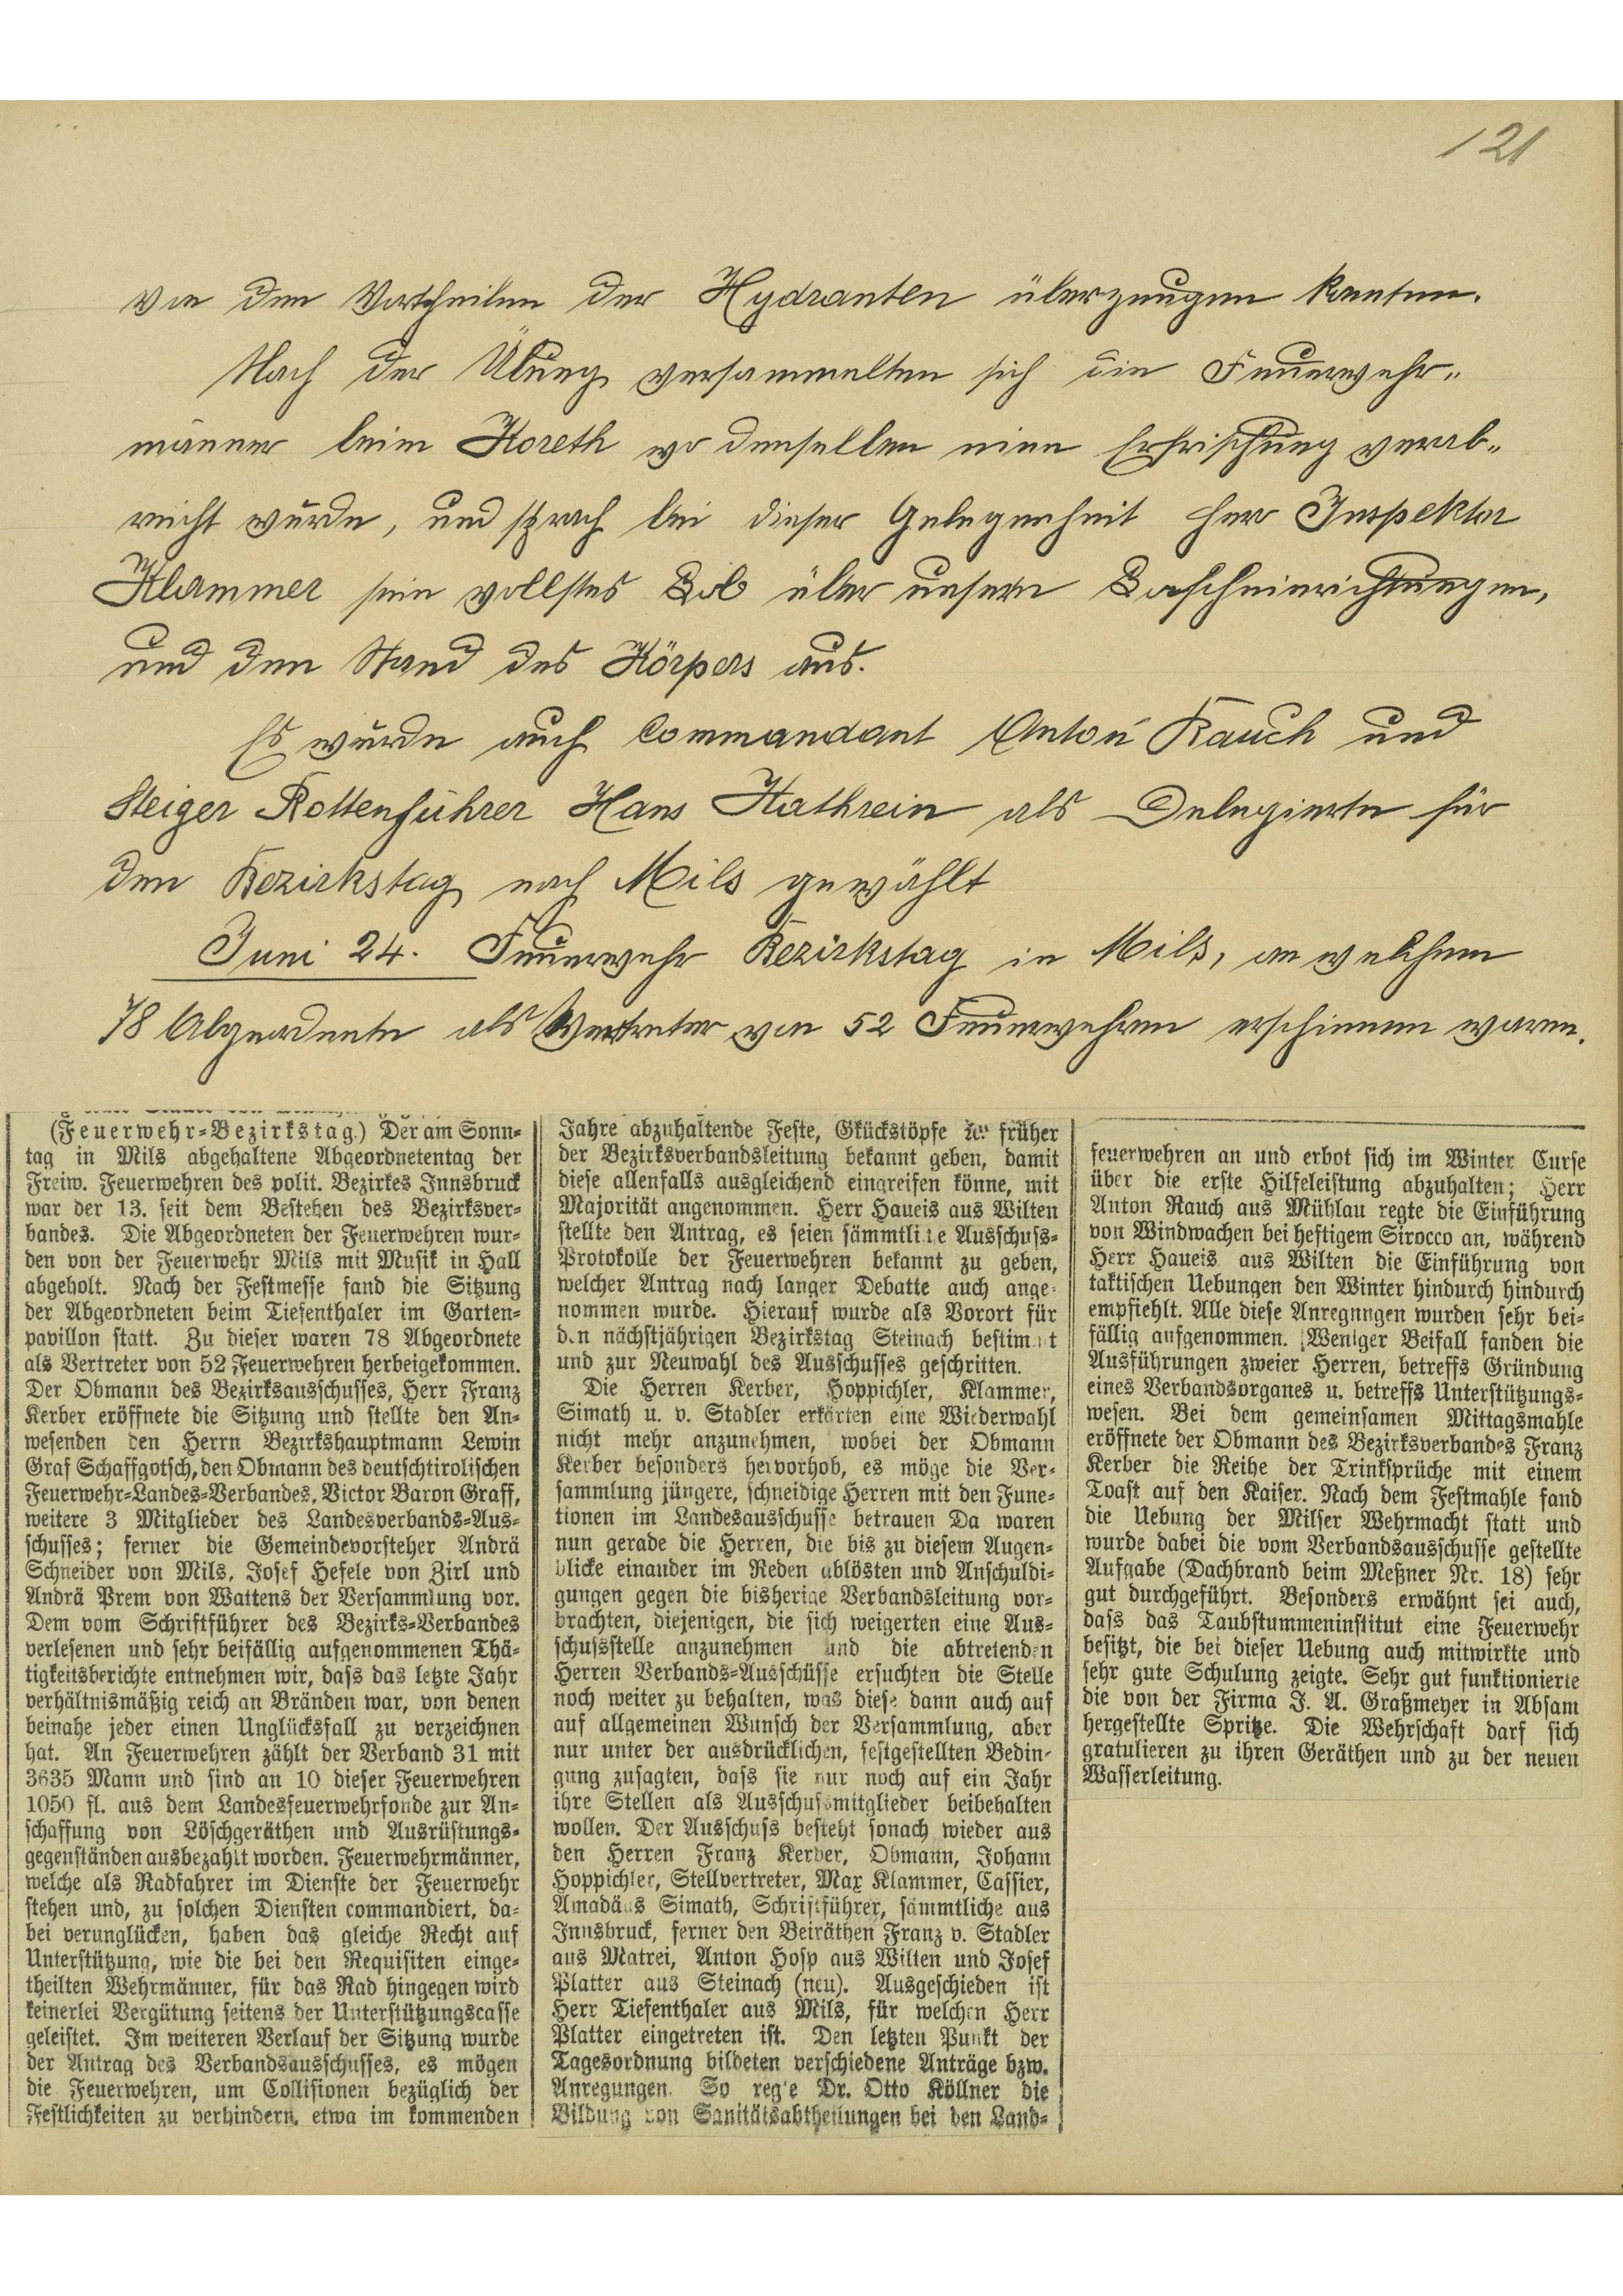 121
von den Vortheilen der Hydranten überzeugen konnten.
Nach der Übung versammelten sich die Feuerwehr„
männer beim Koreth wo denselben eine Erfrischung verab„
reicht wurde, und sprach bei dieser Gelegenheit Herr Inspektor
Klammer sein vollstes Lob über unsere Löscheinrichtungen,
und den Stand des Körpers aus.
Es wurde auch Commandant Anton Rauch und
Steiger Rottenführer Hans Kathrein als Delegierte für
den Bezirkstag nach Mils gewählt
Juni 24. Feuerwehr Bezirkstag in Mils, an welchem
78 Abgeordnete als Vertreter von 52 Feuerwehren erschienen waren.
(Feuerwehr-Bezirkstag.) Der am Sonn-
tag in Mils abgehaltene Abgeordnetentag der
Freiw. Feuerwehren des polit. Bezirkes Innsbruck
war der 13. seit dem Bestehen des Bezirksver-
bandes. Die Abgeordneten der Feuerwehren wur-
den von der Feuerwehr Mils mit Musik in Hall
abgeholt. Nach der Festmesse fand die Sitzung
der Abgeordneten beim Tiefenthaler im Garten-
pavillon statt. Zu dieser waren 78 Abgeordnete
als Vertreter von 52 Feuerwehren herbeigekommen.
Der Obmann des Bezirksausschusses, Herr Franz
Kerber eröffnete die Sitzung und stellte den An-
wesenden den Herrn Bezirkshauptmann Lewin
Graf Schaffgotsch, den Obmann des deutschtirolischen
Feuerwehr-Landes-Verbandes, Victor Baron Graff,
weitere 3 Mitglieder des Landesverbands-Aus-
schusses; ferner die Gemeindevorsteher Andrä
Schneider von Mils, Josef Hefele von Zirl und
Andrä Prem von Wattens der Versammlung vor.
Dem vom Schriftführer des Bezirks-Verbandes
verlesenen und sehr beifällig aufgenommenen Thä-
tigkeitsberichte entnehmen wir, dass das letzte Jahr
verhältnismäßig reich an Bränden war, von denen
beinahe jeder einen Unglücksfall zu verzeichnen
hat. An Feuerwehren zählt der Verband 31 mit
3635 Mann und sind an 10 dieser Feuerwehren
1050 fl. aus dem Landesfeuerwehrfonde zur An-
schaffung von Löschgeräthen und Ausrüstungs-
gegenständen ausbezahlt worden. Feuerwehrmänner,
welche als Radfahrer im Dienste der Feuerwehr
stehen und, zu solchen Diensten commandiert, da-
bei verunglücken, haben das gleiche Recht auf
Unterstützung, wie die bei den Requisiten einge-
theilten Wehrmänner, für das Rad hingegen wird
keinerlei Vergütung seitens der Unterstützungscasse
geleistet. Im weiteren Verlauf der Sitzung wurde
der Antrag des Verbandsausschusses, es mögen
die Feuerwehren, um Collisionen bezüglich der
Festlichkeiten zu verhindern, etwa im kommenden
Jahre abzuhaltende Feste, Gkückstöpfe früher
der Bezirksverbandsleitung bekannt geben, damit
diese allenfalls ausgleichend eingreifen könne, mit
Majorität angenommen. Herr Haueis aus Wilten
stellte den Antrag, es seien sämmtliche Ausschuss-
Protokolle der Feuerwehren bekannt zu geben,
welcher Antrag nach langer Debatte auch ange-
nommen wurde. Hierauf wurde als Vorort für
den nächstjährigen Bezirkstag Steinach bestimmt
und zur Neuwahl des Ausschusses geschritten.
Die Herren Kerber, Hoppichler, Klammer,
Simath u. v. Stadler erkärten eine Wiederwahl
nicht mehr anzunehmen, wobei der Obmann
Kerber besonders hervorhob, es möge die Ver-
sammlung jüngere, schneidige Herren mit den Fune-
tionen im Landesausschusse betrauen Da waren
nun gerade die Herren, die bis zu diesem Augen-
blicke einander im Reden ablösten und Anschuldi-
gungen gegen die bisherige Verbandsleitung vor-
brachten, diejenigen, die sich weigerten eine Aus-
schussstelle anzunehmen und die abtretenden
Herren Verbands-Ausschüsse ersuchten die Stelle
noch weiter zu behalten, was diese dann auch auf
auf allgemeinen Wunsch der Versammlung, aber
nur unter der ausdrücklichen, festgestellten Bedin-
gung zusagten, dass sie nur noch auf ein Jahr
ihre Stellen als Ausschussmitglieder beibehalten
wollen. Der Ausschuss besteht sonach wieder aus
den Herren Franz Kerber, Obmann, Johann
Hoppichler, Stellvertreter, Max Klammer, Cassier,
Amadäus Simath, Schriftführer, sämmtliche aus
Innsbruck, ferner den Beiräthen Franz v. Stadler
aus Matrei, Anton Hosp aus Wilten und Josef
Platter aus Steinach (neu). Ausgeschieden ist
Herr Tiefenthaler aus Mils, für welchen Herr
Platter eingetreten ist. Den letzten Punkt der
Tagesordnung bildeten verschiedene Anträge bzw.
Anregungen. So regte Dr. Otto Köllner die
Bildung von Sanitätsabtheilungen bei den Land-
feuerwehren an und erbot sich im Winter Curse
über die erste Hilfeleistung abzuhalten; Herr
Anton Rauch aus Mühlau regte die Einführung
von Windwachen bei heftigem Sirocco an, während
Herr Haueis aus Wilten die Einführung von
taktischen Uebungen den Winter hindurch hindurch
empfiehlt. Alle diese Anregnngen wurden sehr bei-
fällig aufgenommen. Weniger Beifall fanden die
Ausführungen zweier Herren, betreffs Gründung
eines Verbandsorganes u. betreffs Unterstützungs-
wesen. Bei dem gemeinsamen Mittagsmahle
eröffnete der Obmann des Bezirksverbandes Franz
Kerber die Reihe der Trinksprüche mit einem
Toast auf den Kaiser. Nach dem Festmahle fand
die Uebung der Milser Wehrmacht statt und
wurde dabei die vom Verbandsausschusse gestellte
Aufgabe (Dachbrand beim Meßner Nr. 18) sehr
gut durchgeführt. Besonders erwähnt sei auch,
dass das Taubstummeninstitut eine Feuerwehr
besitzt, die bei dieser Uebung auch mitwirkte und
sehr gute Schulung zeigte. Sehr gut funktionierte
die von der Firma J. A. Graßmeyer in Absam
hergestellte Spritze. Die Wehrschaft darf sich
gratulieren zu ihren Geräthen und zu der neuen
Wasserleitung.